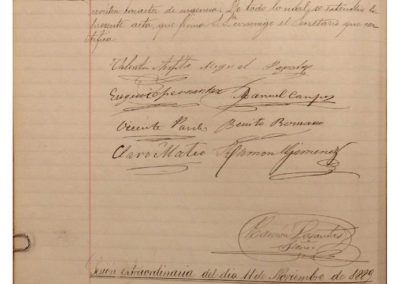 caracter de urgencia. De todo lo cual, se extiende la
presente acta, que firma S. S. conmigo el Secretario que cer
tifico.
Valentin Miguel
Eugenio Fernandez Manuel Campos
Vicente Pardo Benito Romano
Claro Mateo Ramon Gimenez
Sesión extraordinaria del dia 11 de Noviembre de 1889